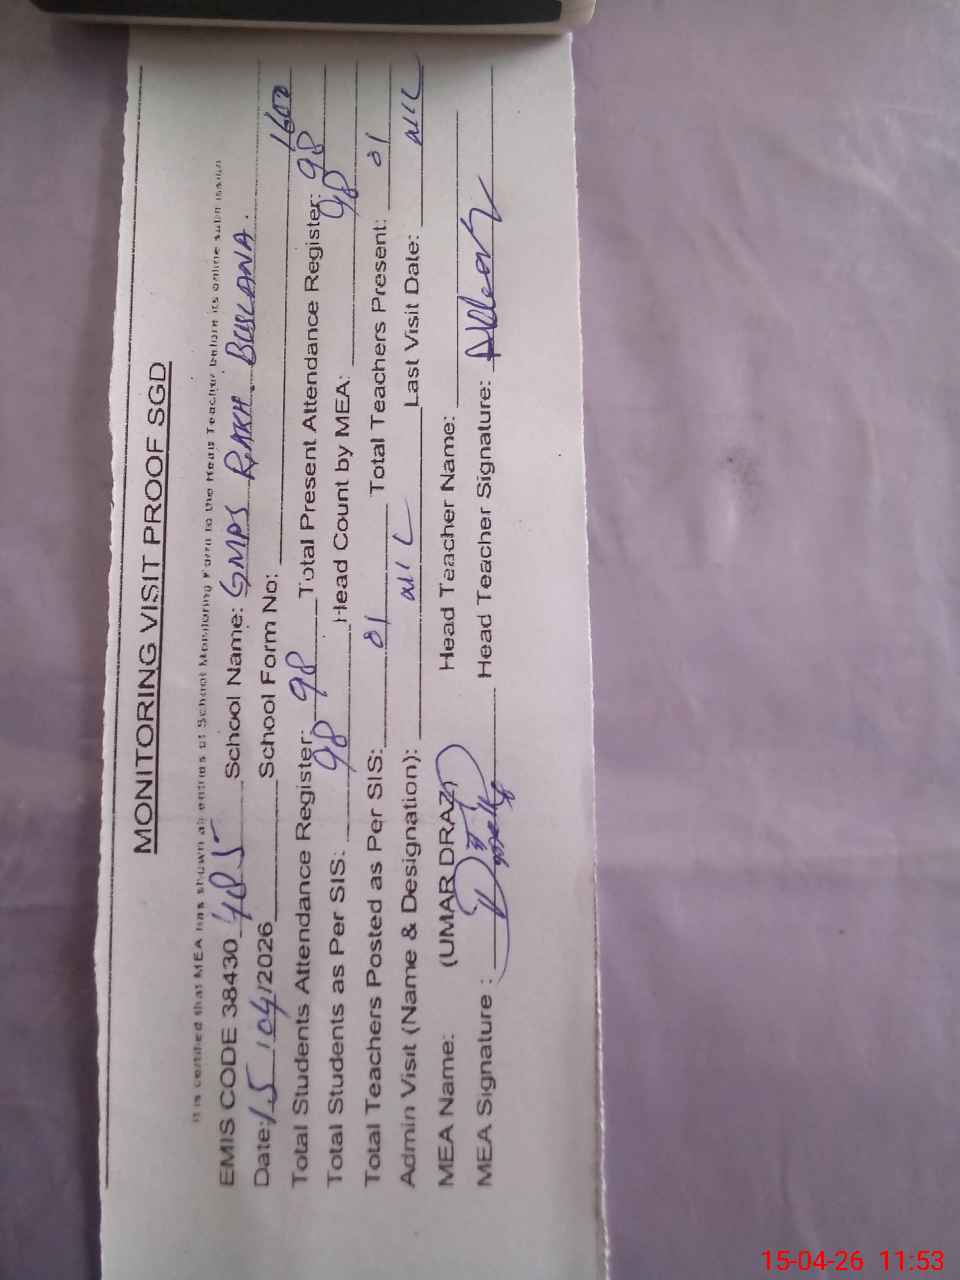 MONITORING VISIT PROOF SGD
It is certified that MEA has shown all entries of School Monitoring Form to the Head Teacher before its online submission
EMIS CODE 38430 485 School Name: GMPS RAKH. BUSLANA.
Date: 15/04/2026 School Form No: 1600
Total Students Attendance Register: 98 Total Present Attendance Register: 98
Total Students as Per SIS: 98 Head Count by MEA: 98
Total Teachers Posted as Per SIS: 01 Total Teachers Present: 01
Admin Visit (Name & Designation): Last Visit Date:
MEA Name: (UMAR DRAZ) Head Teacher Name:
MEA Signature : Head Teacher Signature:
15-04-26 11:53